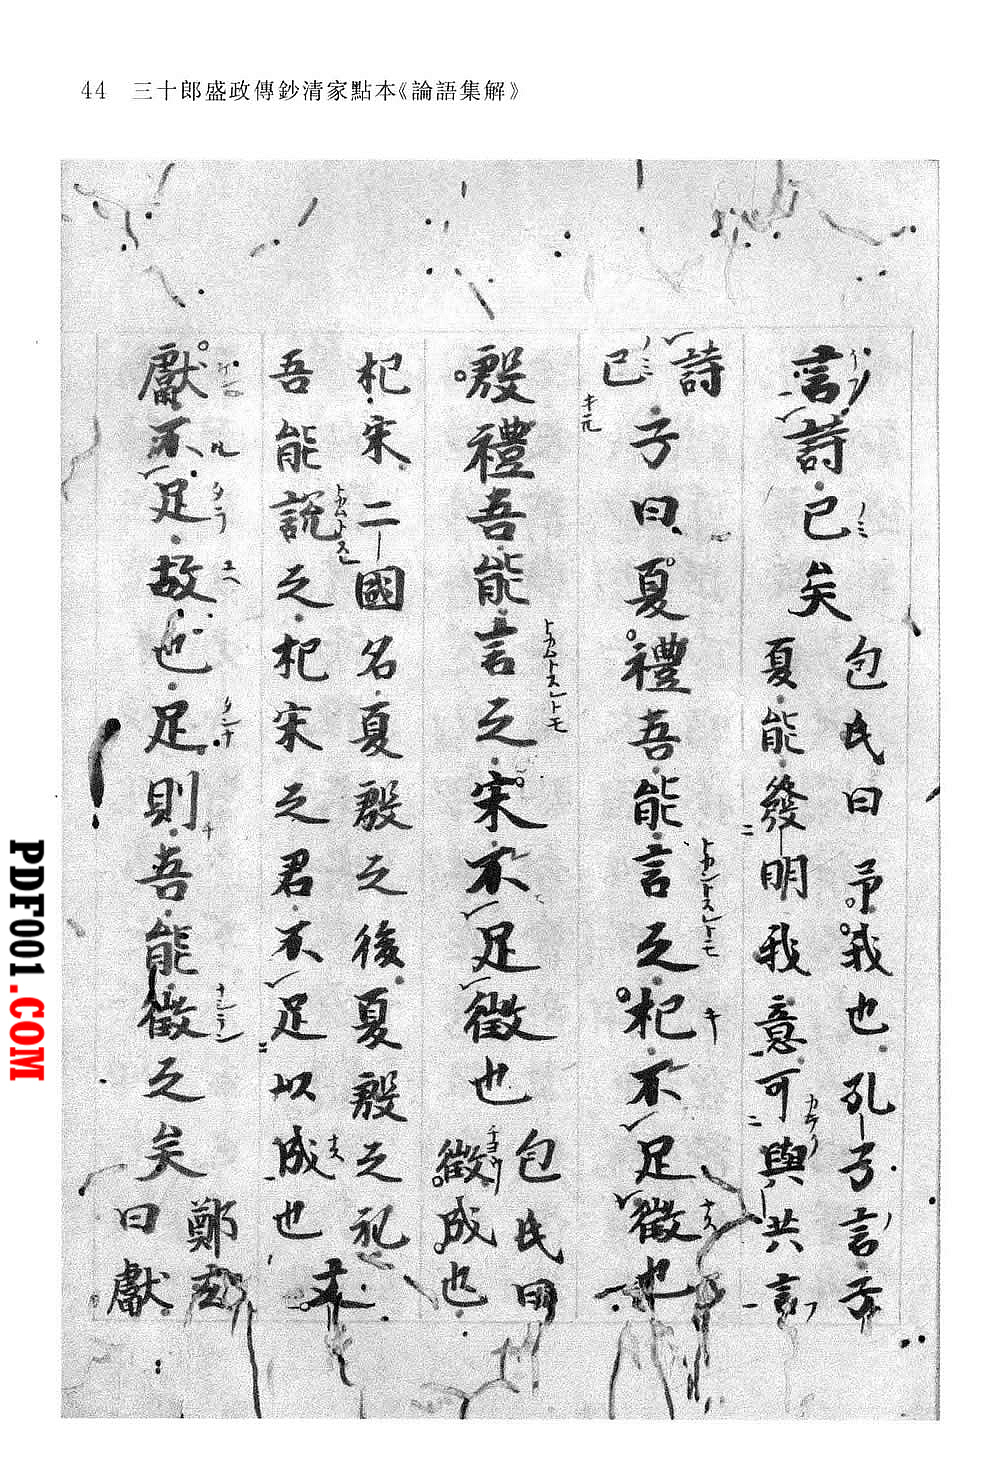 44 三十郎盛政傳鈔清家點本《論語集解》
言詩已矣
包氏曰予我也孔子言子
夏能發明我意可與共言
詩
已
子曰夏禮吾能言之杞不足徵也
殷禮吾能言之宋不足徵也
包氏曰
徵成也
杞宋二國名夏殷之後夏殷之礼
吾能說之杞宋之君不足以成也
文
獻不足故也足則吾能徵之矣
鄭玄
曰獻
PDF001.COM